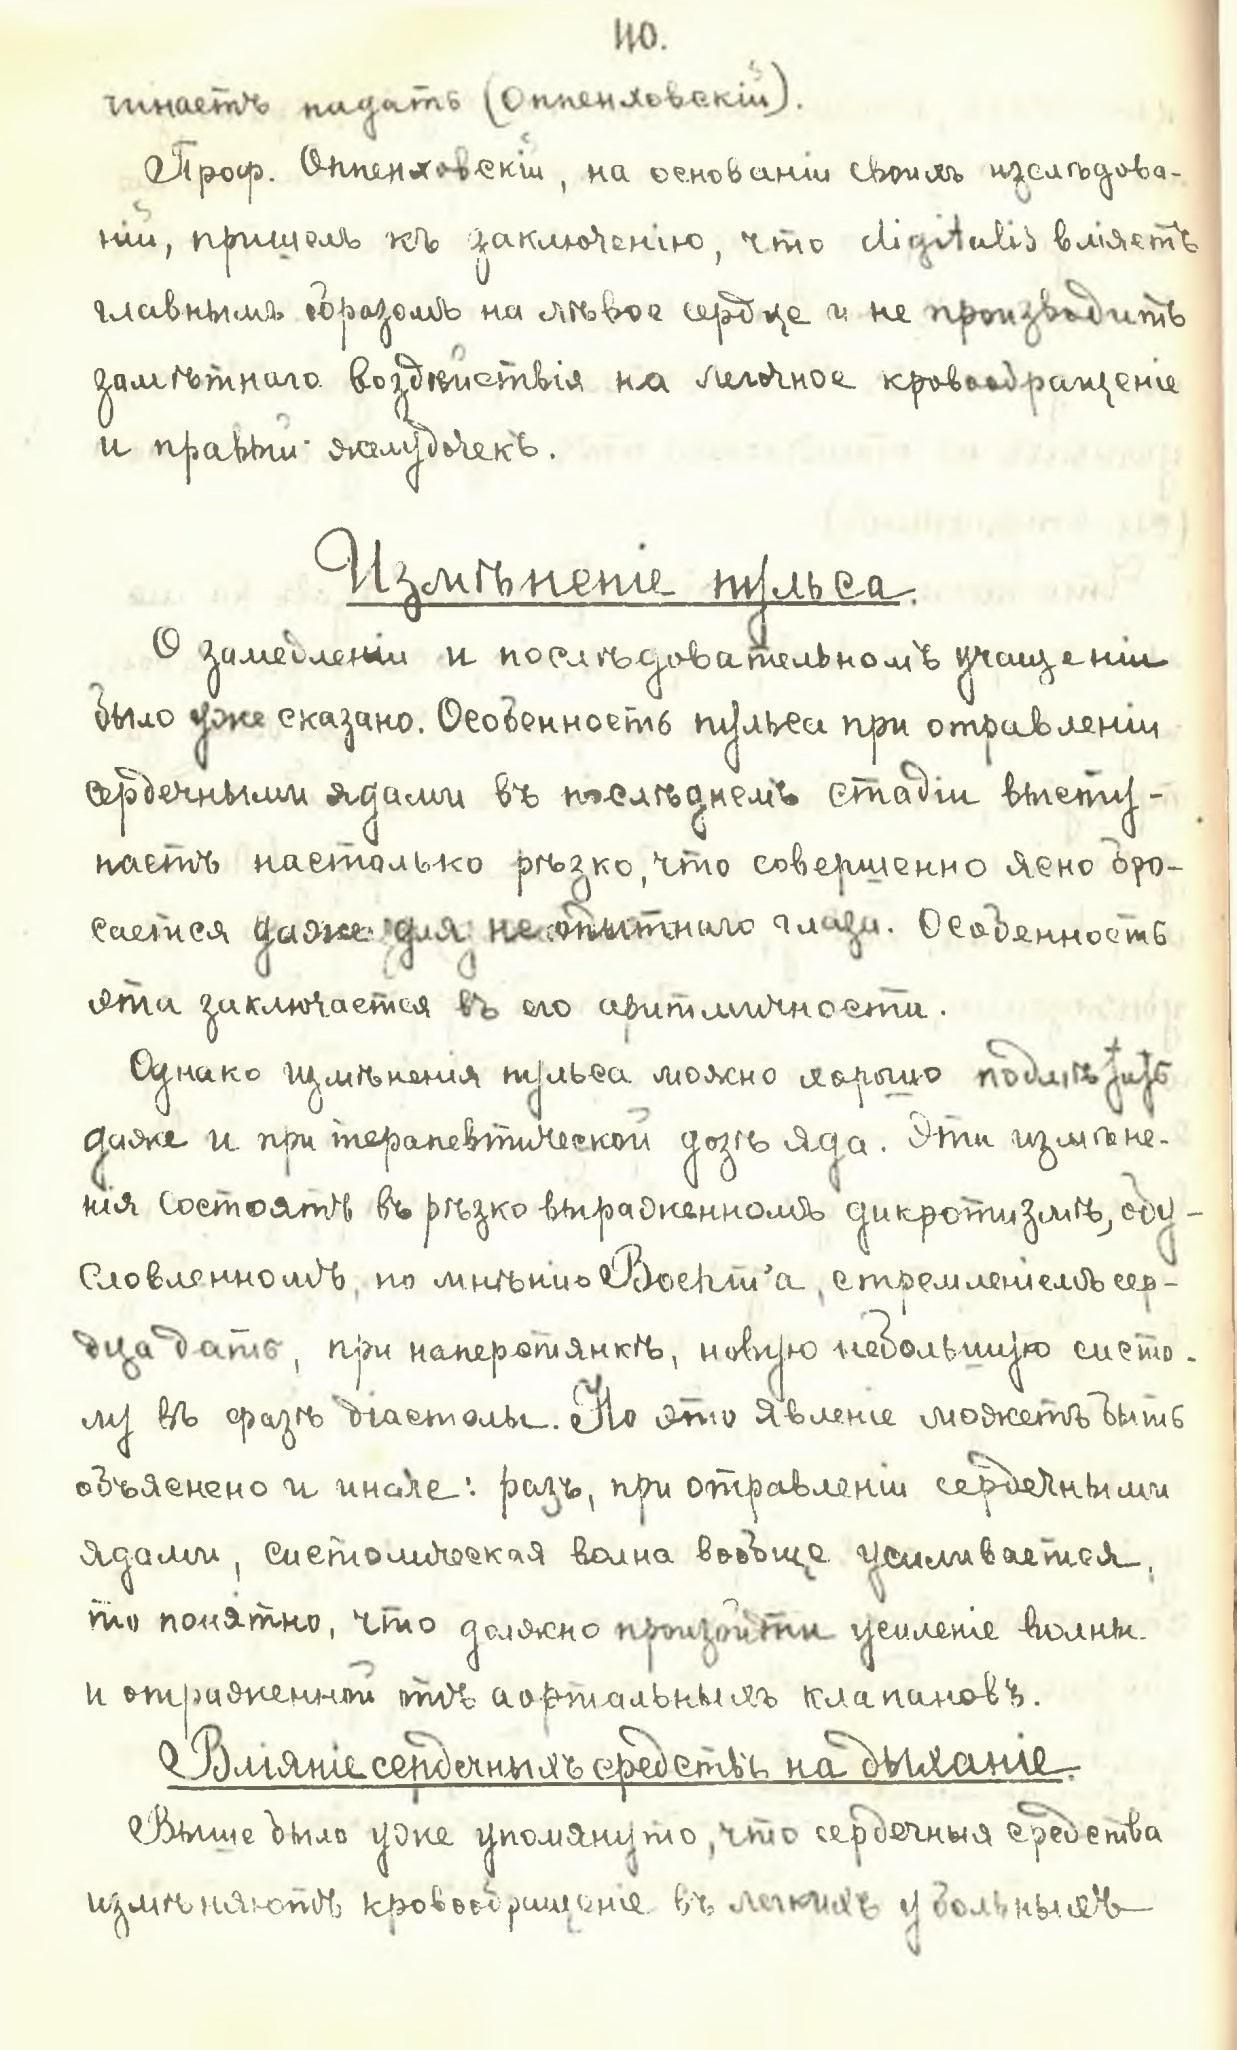 40.
чинаетъ падать (Оппенховскій).
Проф. Оппенховскій, на основаніи своихъ изслѣдова-
ній, пришелъ къ заключенію, что digitalis вліяетъ
главнымъ образомъ на лѣвое сердце и не производитъ
замѣтнаго воздѣйствія на легочное кровообращеніе
и правый желудочекъ.
Измѣненіе пульса.
О замедленіи и послѣдовательномъ учащеніи
было уже сказано. Особенность пульса при отравленіи
сердечными ядами въ послѣднемъ стадіи высту-
паетъ настолько рѣзко, что совершенно ясно бро-
сается даже для неопытнаго глаза. Особенность
эта заключается въ его аритмичности.
Однако измѣненія пульса можно хорошо подмѣтить
даже и при терапевтической дозѣ яда. Эти измѣне-
нія состоятъ въ рѣзко выраженномъ дикротизмѣ, обу-
словленномъ, по мнѣнію Boehm'а, стремленіемъ сер-
дца дать, при наперстянкѣ, новую небольшую систо-
лу въ фазѣ діастолы. Но это явленіе можетъ быть
объяснено и иначе: разъ, при отравленіи сердечными
ядами, систолическая волна вообще усиливается,
то понятно, что должно произойти усиленіе волны
и отраженной отъ аортальныхъ клапановъ.
Вліяніе сердечныхъ средствъ на дыханіе.
Выше было уже упомянуто, что сердечныя средства
измѣняютъ кровообращеніе въ легкихъ у больныхъ